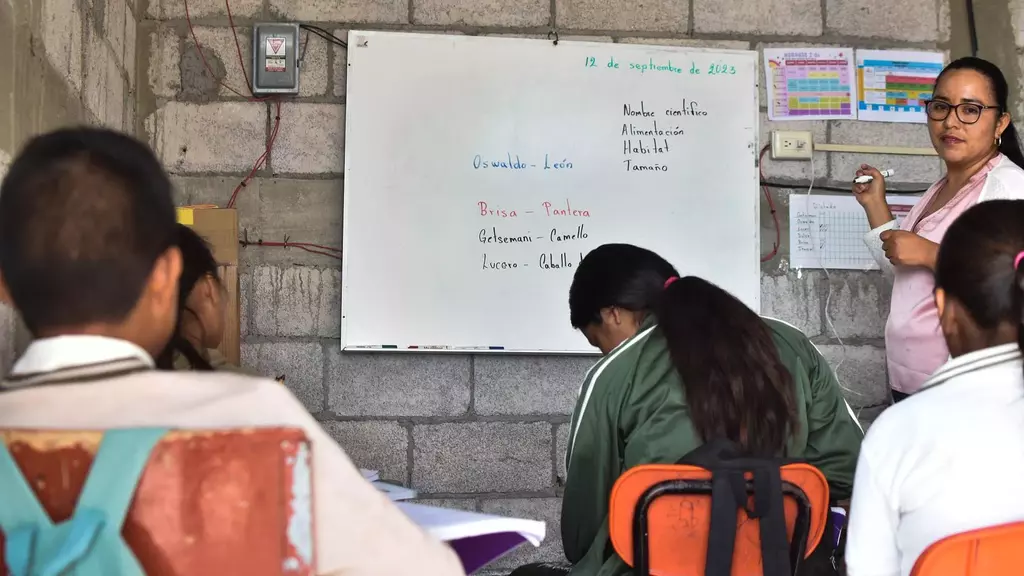 12 de septiembre de 2023
Nombre científico
Alimentación
Habitat
Tamaño
Oswaldo - León
Brisa - Pantera
Getsemani - Camello
Lucero - Caballo